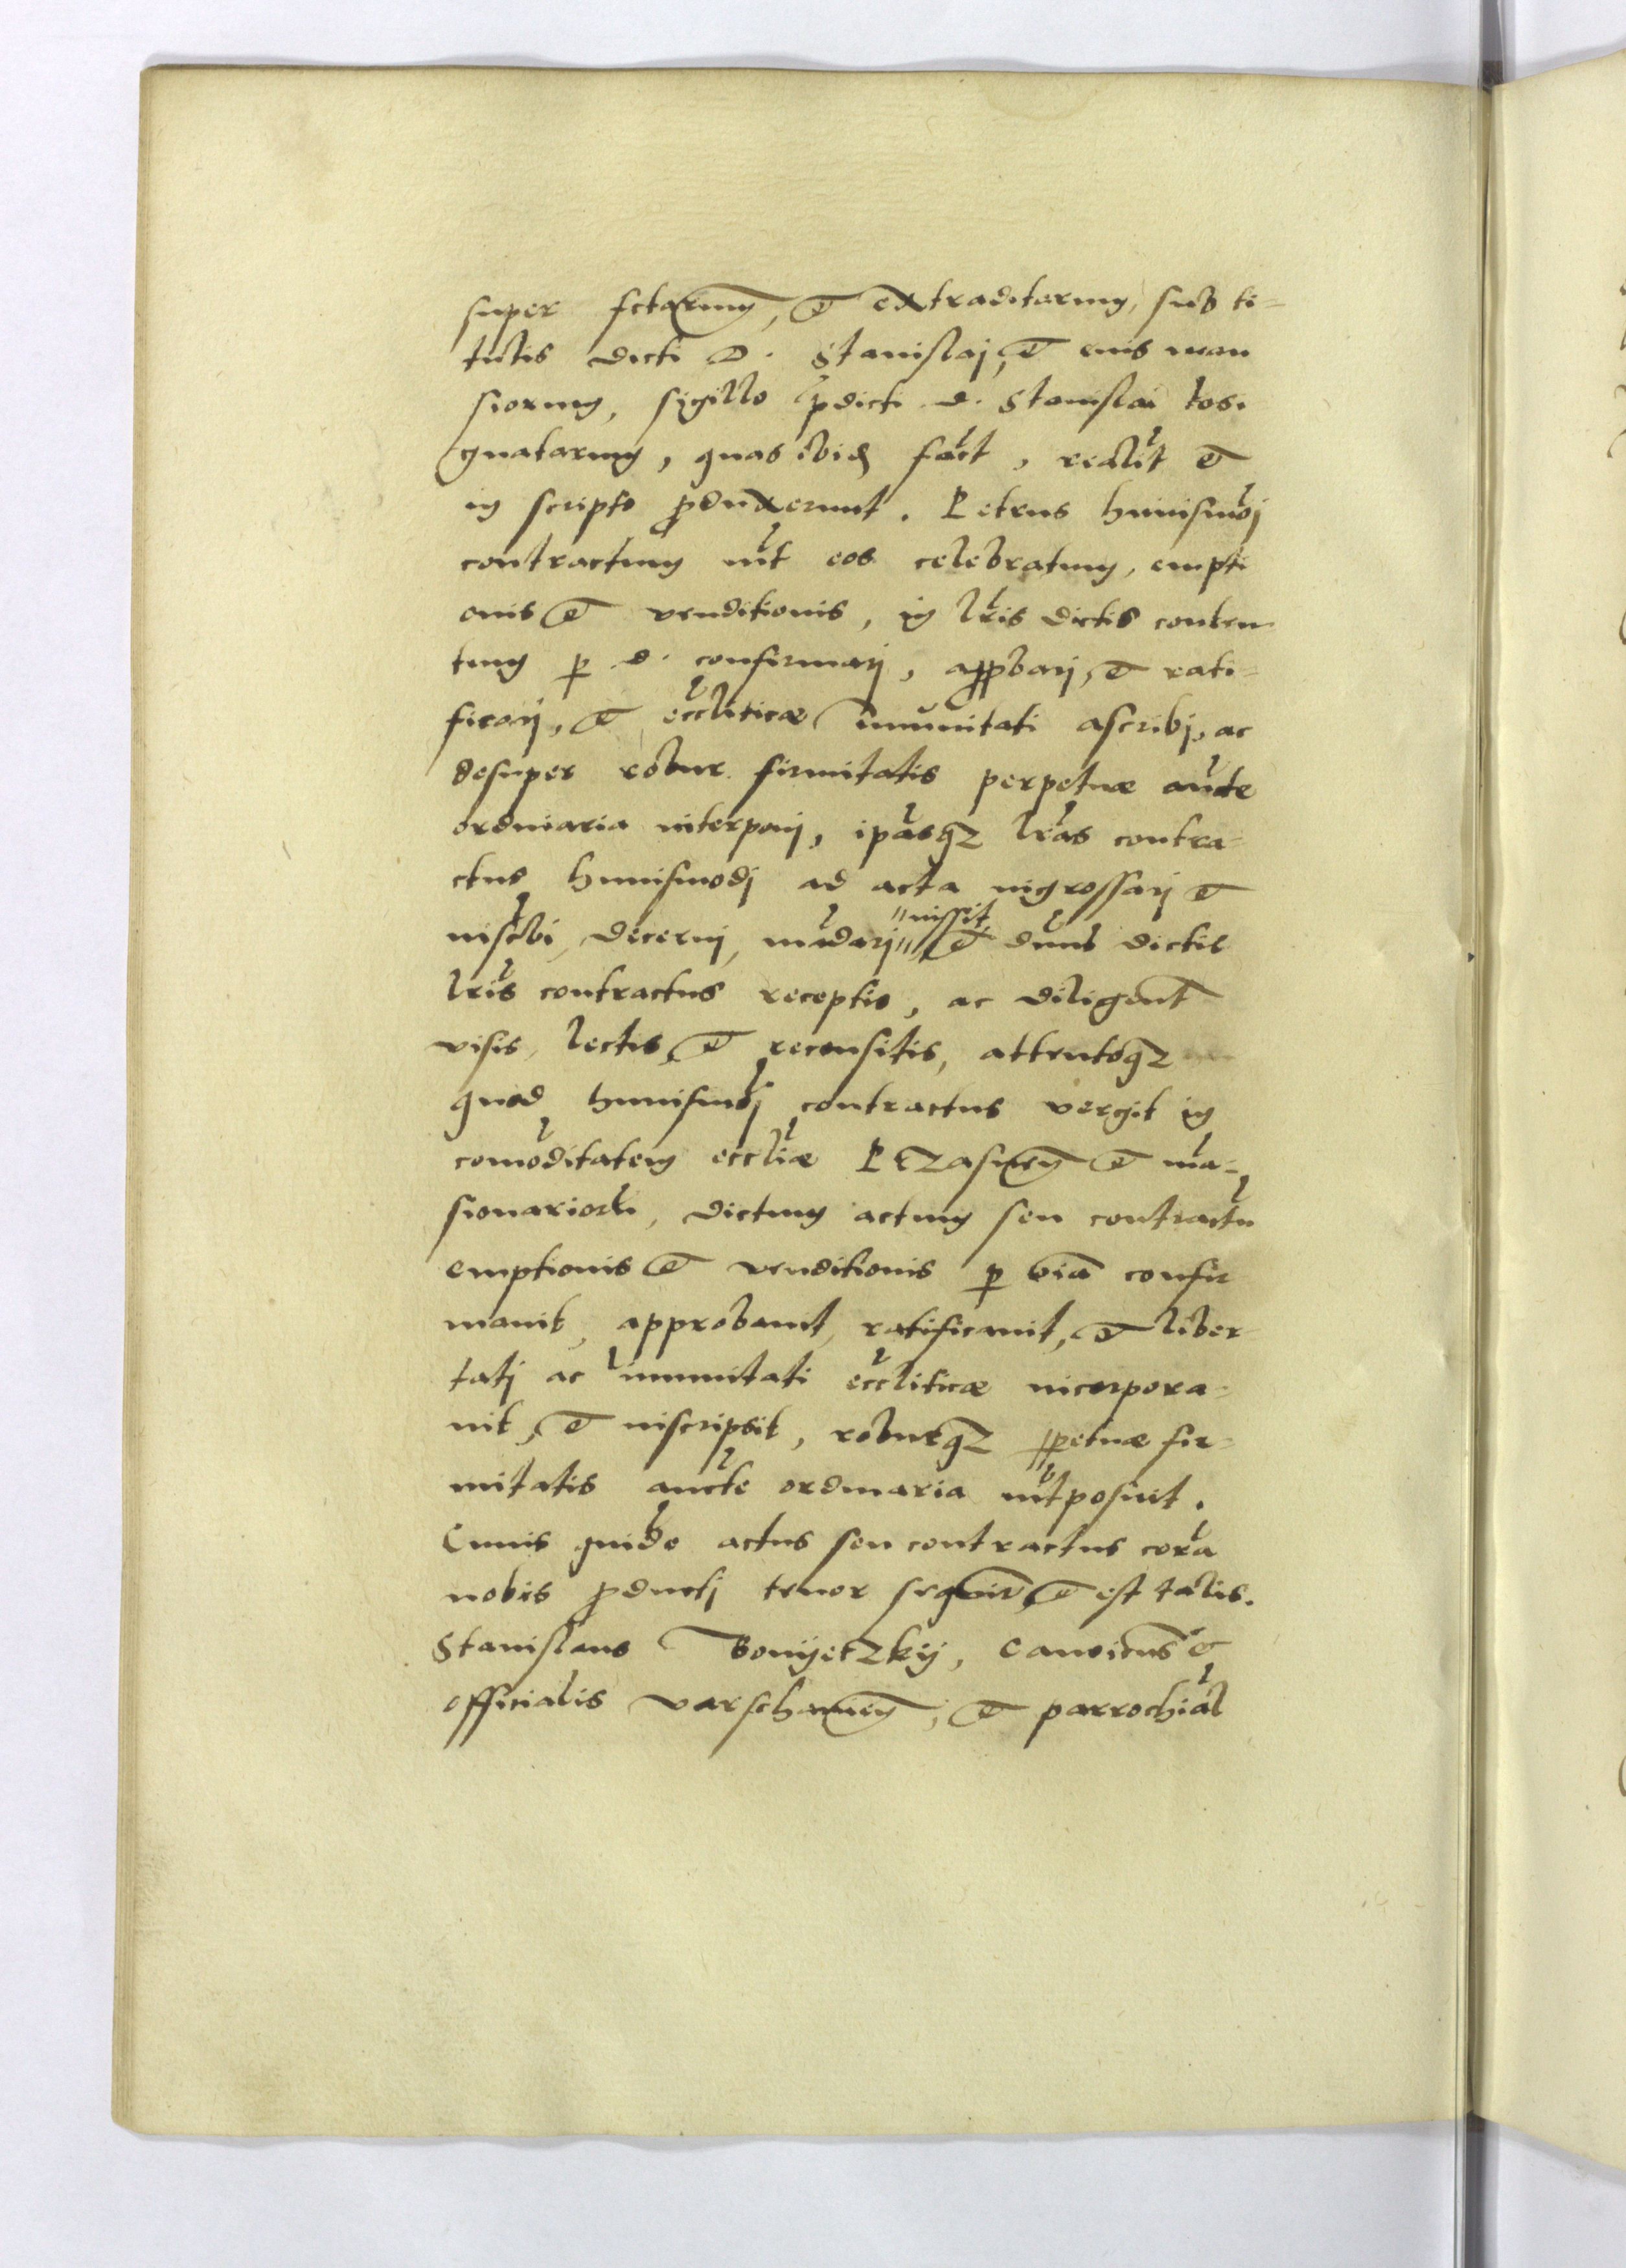 super fctarum, et extraditarum, sub ti-
tulis dicti D. Stanislaj, et eius man
siorum, sigillo pdicti d. Stanislai con-
gnatarum, quas ibid. fact, realit et
in scripto pduxerunt. Petrus huiusmoj
contractum int eos celebratum, empti
onis et venditionis, in lris dictis conten
tum p d. confirmarj, appbarj, et rati-
ficarj, et eccliticæ imunitati ascribj, ac
desuper robur firmitatis perpetuæ aucte
ordinaria interponj, ipasqz lras contra-
ctus huiusmodj ad acta ingrossarj et
inscbi, decernj, mādarj "iussit et dnus dictis
lris contractus receptis, ac diligent
visis, lectis, et recensitis, attentoqz
quod huiusmoj contractus vergit in
comoditatem eccliæ Ptzasnen et mā-
sionarior, dictum actum seu contractu
emptionis et venditionis p oia confir
mauit, approbauit, ratificauit, et liber-
tatj ac imunitati eccliticæ incorpora-
uit, et inscripsit, roburqz ppetuæ fir-
mitatis aucte ordinaria intposuit.
Cuius quide actus seu contractus cora
nobis pductj tenor sequit, et est talis.
Stanislaus Boniyetzkij, Canoicus et
officialis Varschauien, et parrochial